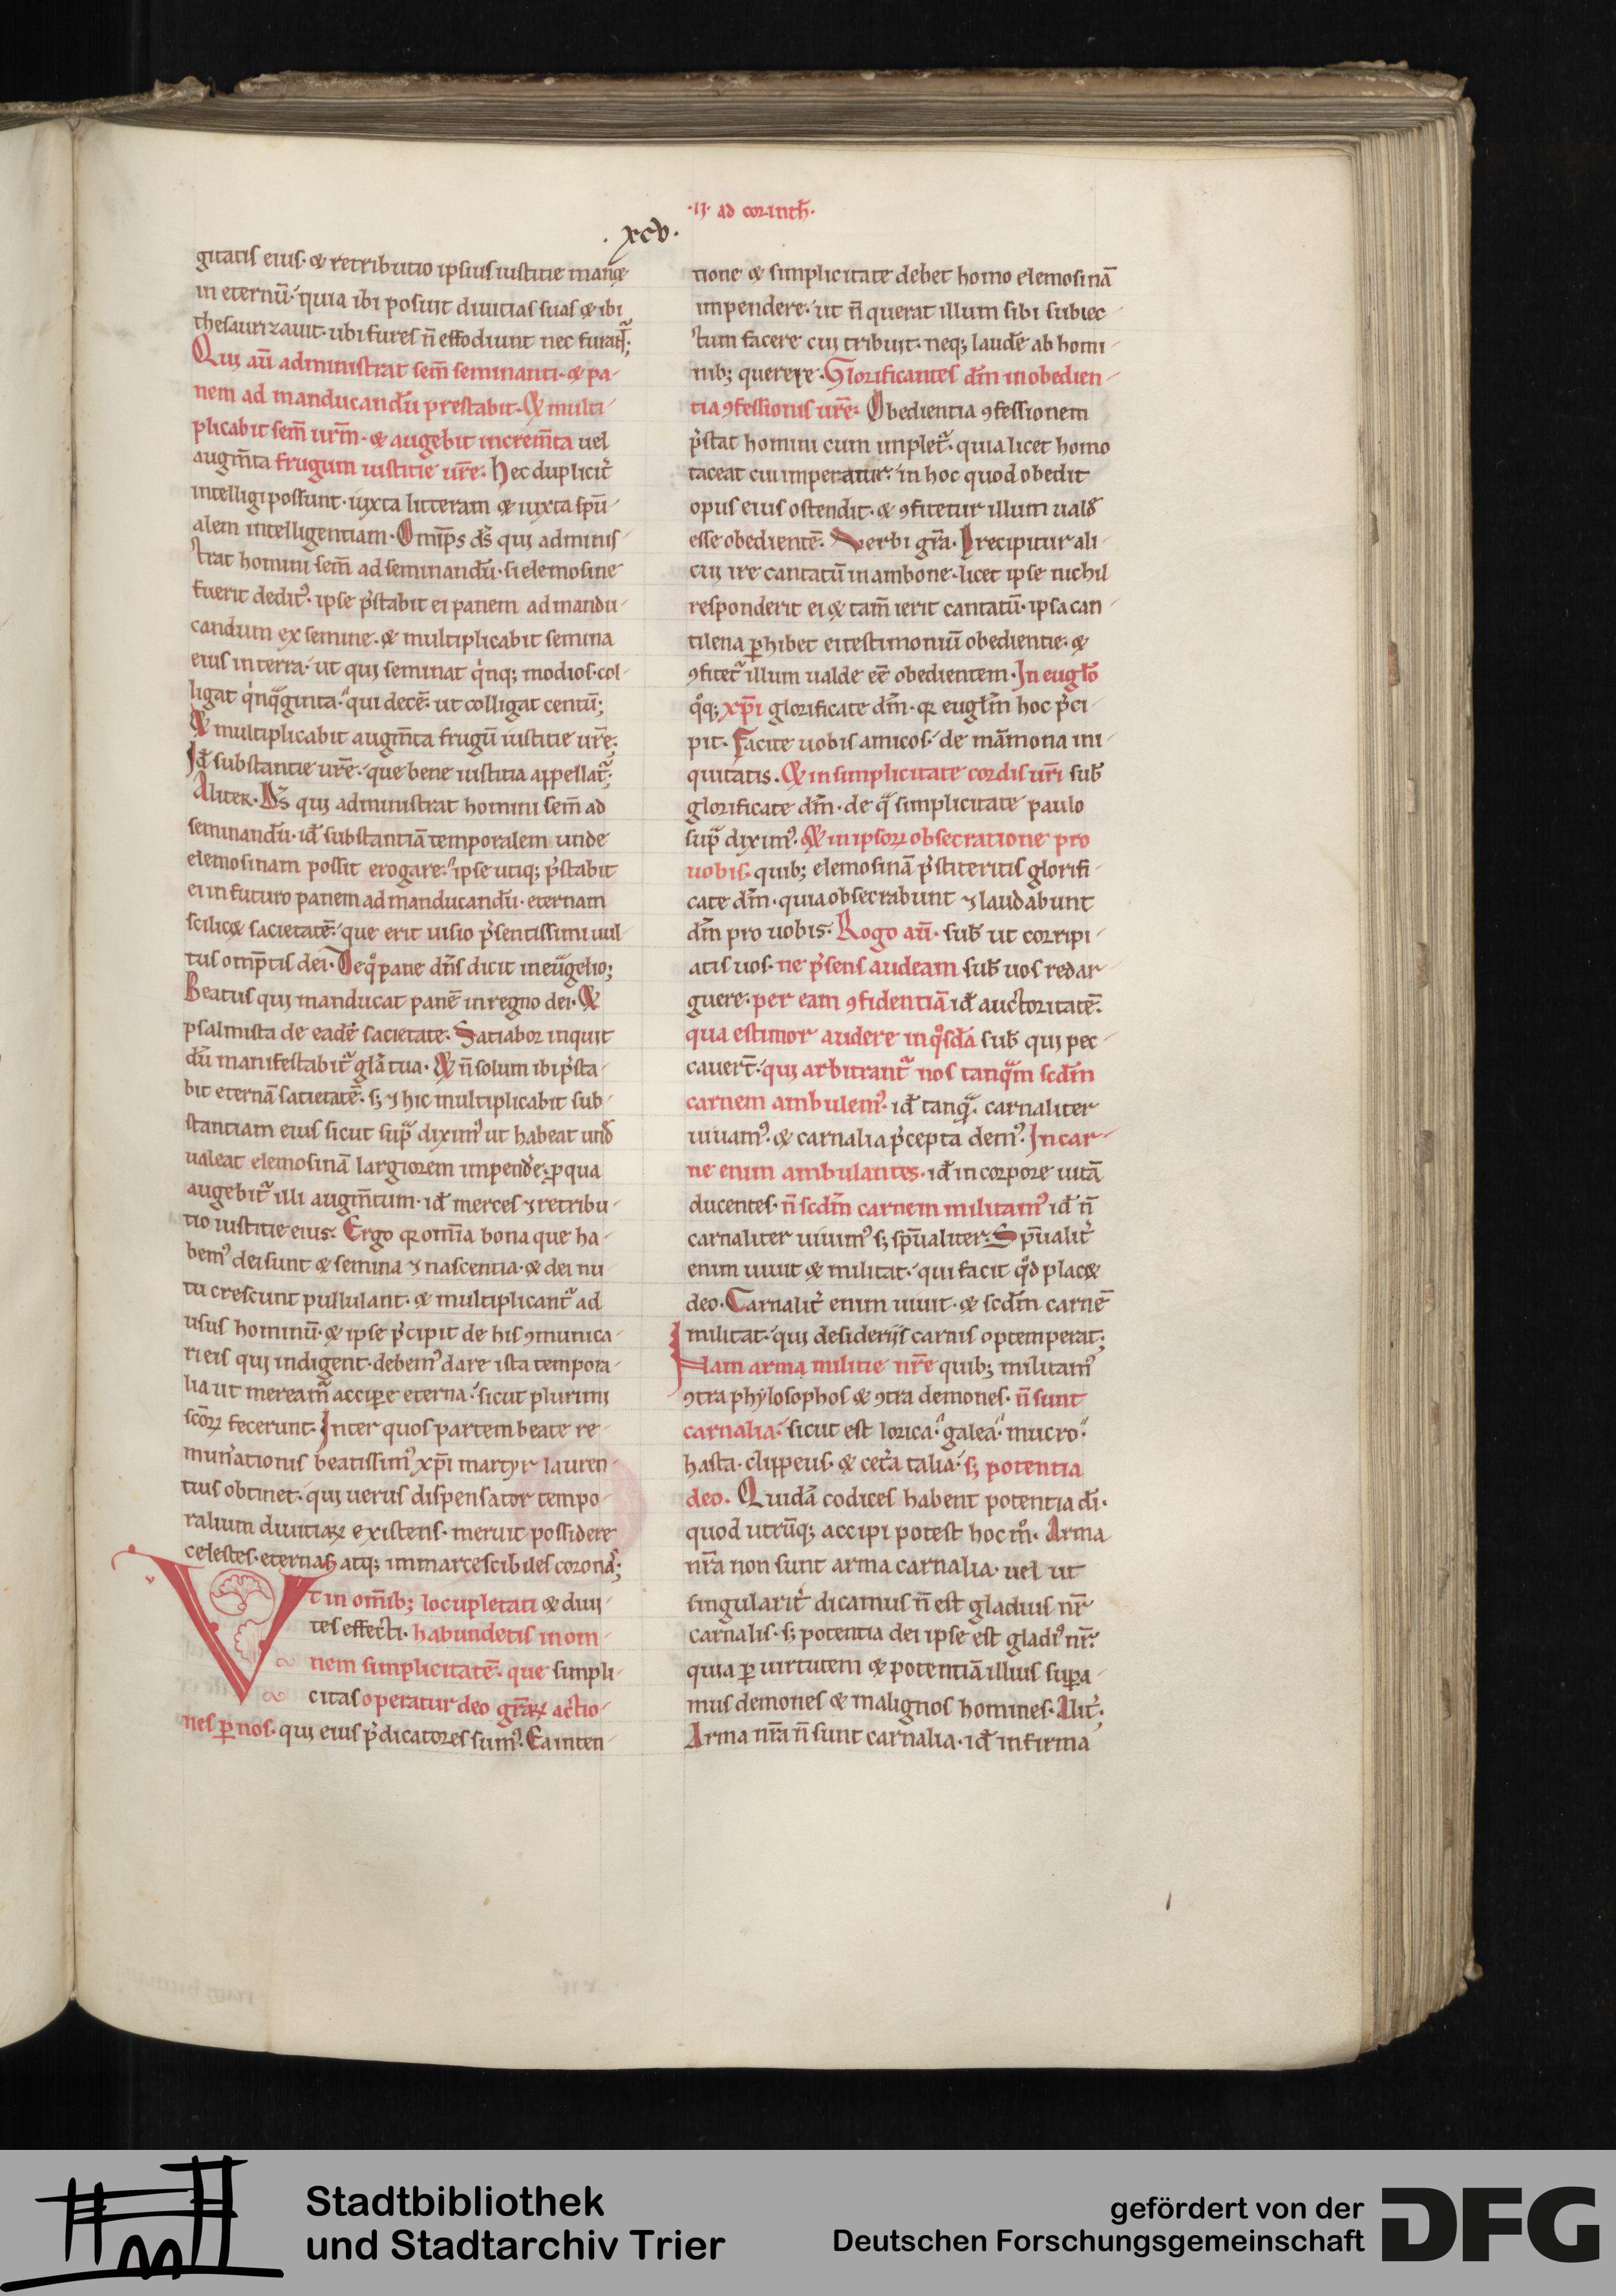 ·II· ad corinth̄·
· xcv ·
gitatis eius· & retributio ipsius iustitie man&
in eternū· quia ibi posuit diuitias suas & ibi
thesaurizauit· ubi fures n̄ effodiunt nec furant᷑;
Qui aū administrat sem̄ seminanti· & pa-
nem ad manducandū prestabit· & multi-
plicabit sem̄ urm̄· & augebit increm̄ta uel
augm̄ta frugum iustitie ur̄e· Hec duplicit̾
intelligi possunt· iuxta litteram & iuxta spū-
alem intelligentiam· Omīps ds̄ qui adminis-
trat homini sem̄ ad seminandū· si elemosine
fuerit deditꝰ· ipse p̾stabit ei panem ad mandu-
candum ex semine· & multiplicabit semina
eius in terra· ut qui seminat q̇nq; modios· col-
ligat q̇nq̄ginta· qui decē· ut colligat centū;
& multiplicabit augm̄ta frugū iustitie ur̄e·
Id̄ substantie ur̄e· que bene iustitia appellat᷑;
Aliter· Ds̄ qui administrat homini sem̄ ad
seminandū· id̄ substantiā temporalem unde
elemosinam possit erogare· ipse utiq; p̾stabit
ei in futuro panem ad manducandū· eternam
scilic& sacietatē· que erit uisio p̾sentissimi uul-
tus omp̄tis dei· De q̊ pane dn̄s dicit in eūgelio;
Beatus qui manducat panē in regno dei· &
psalmista de eadē sacietate· Satiabor inquit
dū manifestabit᷑ glā tua· & n̄ solum ibi p̾sta-
bit eternā satietatē· s; ⁊ hic multiplicabit sub-
stantiam eius sicut sup̄ diximꝰ ut habeat und̄
ualeat elemosinā largiorem impend̾e· ꝑ qua
augebit᷑ illi augm̄tum· id̄ merces ⁊ retribu-
tio iustitie eius· Ergo qꝛ om̄ia bona que ha-
bemꝰ dei sunt & semina ⁊ nascentia· & dei nu-
tu crescunt pullulant· & multiplicant᷑ ad
usus hominū· & ipse p̾cipit de his ꝯmunica-
ri eis qui indigent· debemꝰ dare ista tempora-
lia ut meream᷑ acciꝑe eterna· sicut plurimi
scōꝝ fecerunt· Inter quos partem beate re-
mun̾ationis beatissimꝰ xp̄i martyr lauren-
tius obtinet· qui uerus dispensator tempo-
ralium diuitiaꝝ existens· meruit possidere
celestes· eternas atq; immarcescibiles coronas;
Vt in om̄ib; locupletati & diui-
tes effecti· habundetis in om-
nem simplicitatē· que simpli-
citas operatur deo gr̄aꝝ actio-
nes ꝑ nos· qui eius p̾dicatores sumꝰ· Ea inten-
tione & simplicitate debet homo elemosinā
impendere· ut n̄ querat illum sibi subiec-
tum facere cui tribuit· neq; laudē ab homi-
nib; querere· Glorificantes dm̄ in obedien-
tia ꝯfessionis ur̄e· Obedientia ꝯfessionem
p̾stat homini cum implet᷑· quia licet homo
taceat cui imperatur· in hoc quod obedit
opus eius ostendit· & ꝯfitetur illum uald̄
esse obedientē· Verbi gr̄a· Precipitur ali-
cui ire cantatū in ambone· licet ipse nichil
responderit ei & tam̄ ierit cantatū· ipsa can-
tilena ꝑhibet ei testimoniū obedientie· &
ꝯfitet᷑ illum ualde eē obedientem· In eugl̄o
q̊q; xp̄i glorificate dm̄· qꝛ eugl̄m hoc p̾ci-
pit· Facite uobis amicos· de māmona ini-
quitatis· & in simplicitate cordis ur̄i sub̄
glorificate dm̄· de q̄ simplicitate paulo
sup̄ diximꝰ· & in ipsoꝝ obsecratione pro
uobis· quib; elemosinā p̾stiteritis glorifi-
cate dm̄· quia obsecrabunt ⁊ laudabunt
dm̄ pro uobis· Rogo aū· sub̄ ut corripi-
atis uos· ne p̾sens audeam sub̄ uos redar-
guere· per eam ꝯfidentiā id̄ auctoritatē·
qua estimor audere in q̊sdā sub̄ qui pec-
cauer̄t· qui arbitrant᷑ nos tanq̄m scdm̄
carnem ambulemꝰ· id̄ tanq̄· carnaliter
uiuamꝰ· & carnalia p̾cepta demꝰ· In car-
ne enim ambulantes· id̄ in corpore uitā
ducentes· n̄ scdm̄ carnem militamꝰ id̄ n̄
carnaliter uiuimꝰ s; sp̄ualiter· Sp̄ualit̾
enim uiuit & militat· qui facit q̊d plac&
deo· Carnalit̾ enim uiuit· & scdm̄ carnē
militat· qui desiderijs carnis optemperat;
Nam arma militie nr̄e quib; militamꝰ
ꝯtra phylosophos & ꝯtra demones· n̄ sunt
carnalia· sicut est lorica· galea· mucro·
hasta· clippeus· & cet̾a talia· s; potentia
deo· Quidā codices habent potentia dī·
quod utrūq; accipi potest hoc m̊· Arma
nr̄a non sunt arma carnalia· uel ut
singularit̾ dicamus n̄ est gladius nr̄
carnalis· s; potentia dei ipse est gladiꝰ nr̄·
quia ꝑ uirtutem & potentiā illius suꝑa-
mus demones & malignos homines· Alit̾;
Arma nr̄a n̄ sunt carnalia· id̄ infirma
Stadtbibliothek
und Stadtarchiv Trier
gefördert von der
Deutschen Forschungsgemeinschaft
DFG